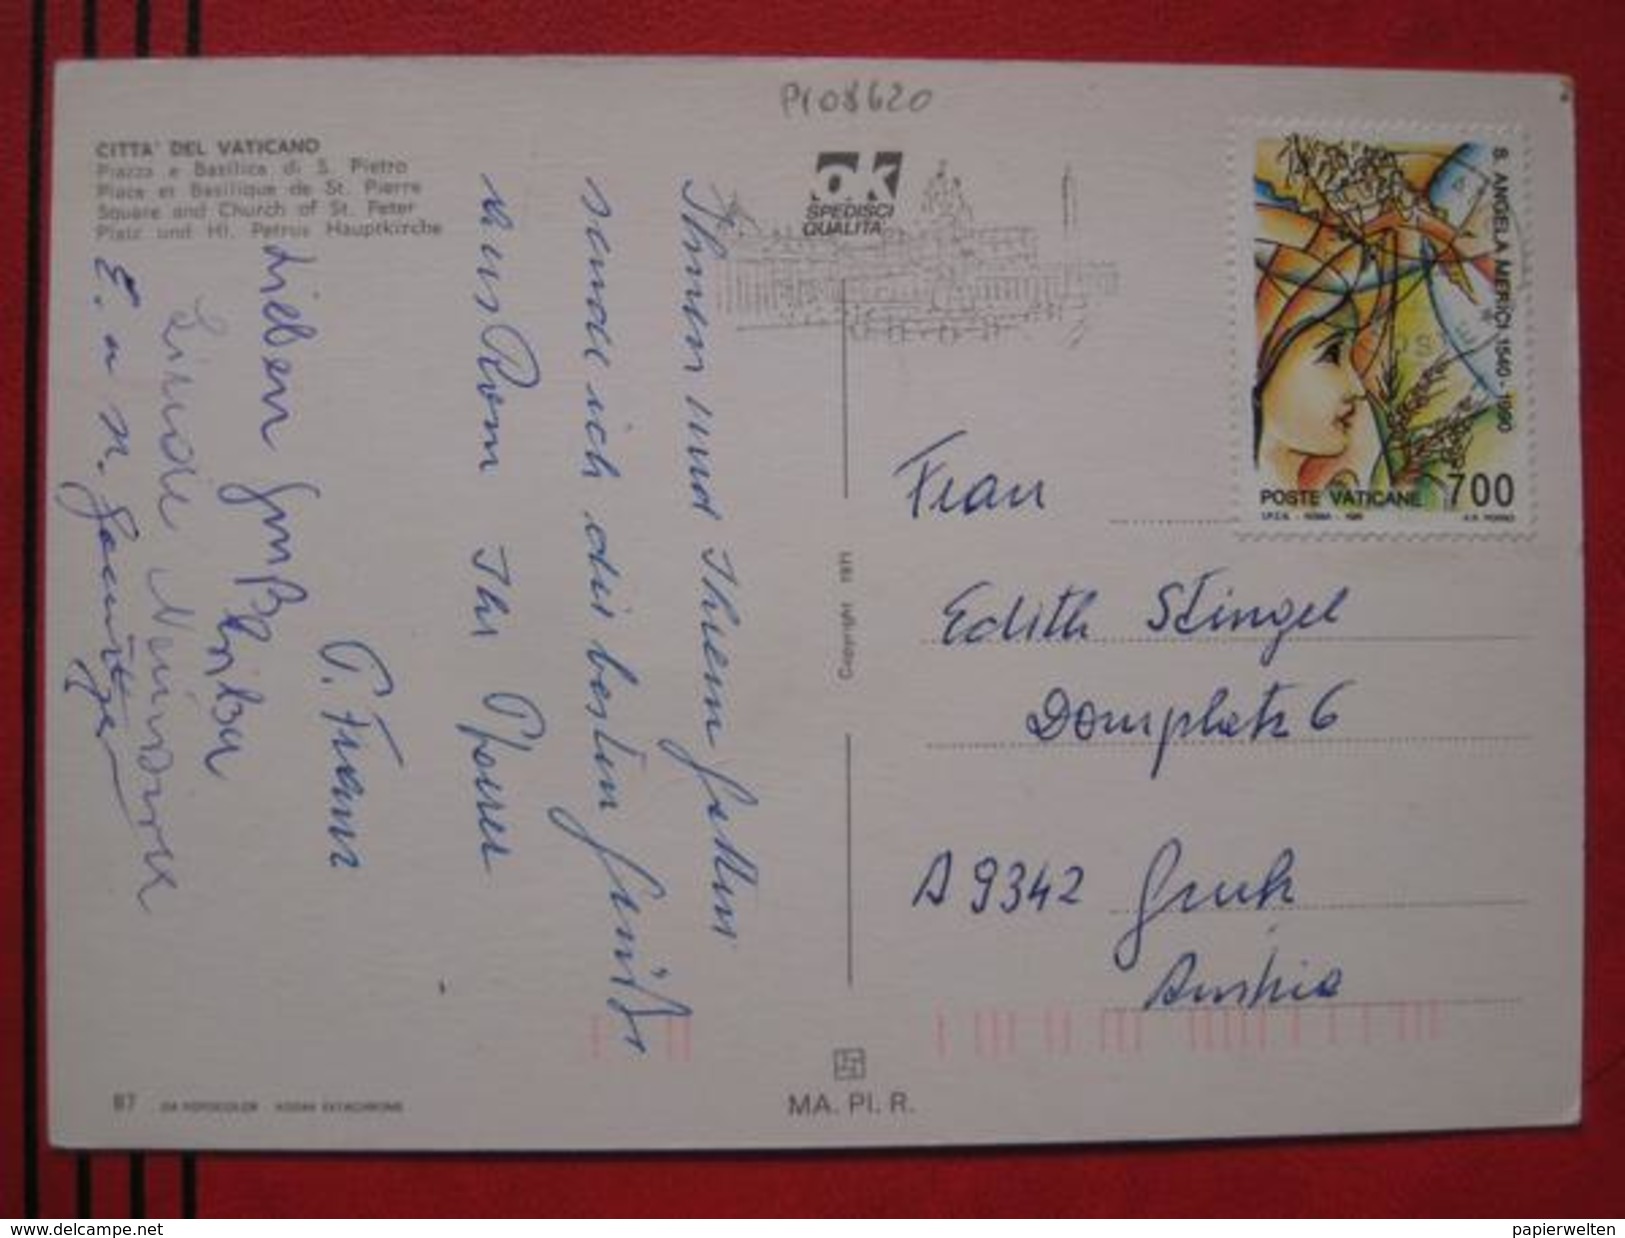 P108620
CITTA' DEL VATICANO
Piazza e Basilica di S. Pietro
Place et Basilique de St. Pierre
Square and Church of St. Peter
Platz und Hl. Petrus Hauptkirche
Ihnen und Ihrem
sende ich die besten Grüße
aus Rom Ihr Pfarrer
P. Franz
Lieben Gruß
E. u. H.
o.k
SPEDISCI
QUALITÀ
S. ANGELA MERICI 1540-1990
POSTE VATICANE 700
Frau
Edith Stingel
Domplatz 6
A 9342 Gurk
Austria
Copyright 1971
87 DA FOTOCOLOR KODAK EKTACHROME
MA. PI. R.
www.delcampe.net
papierwelten